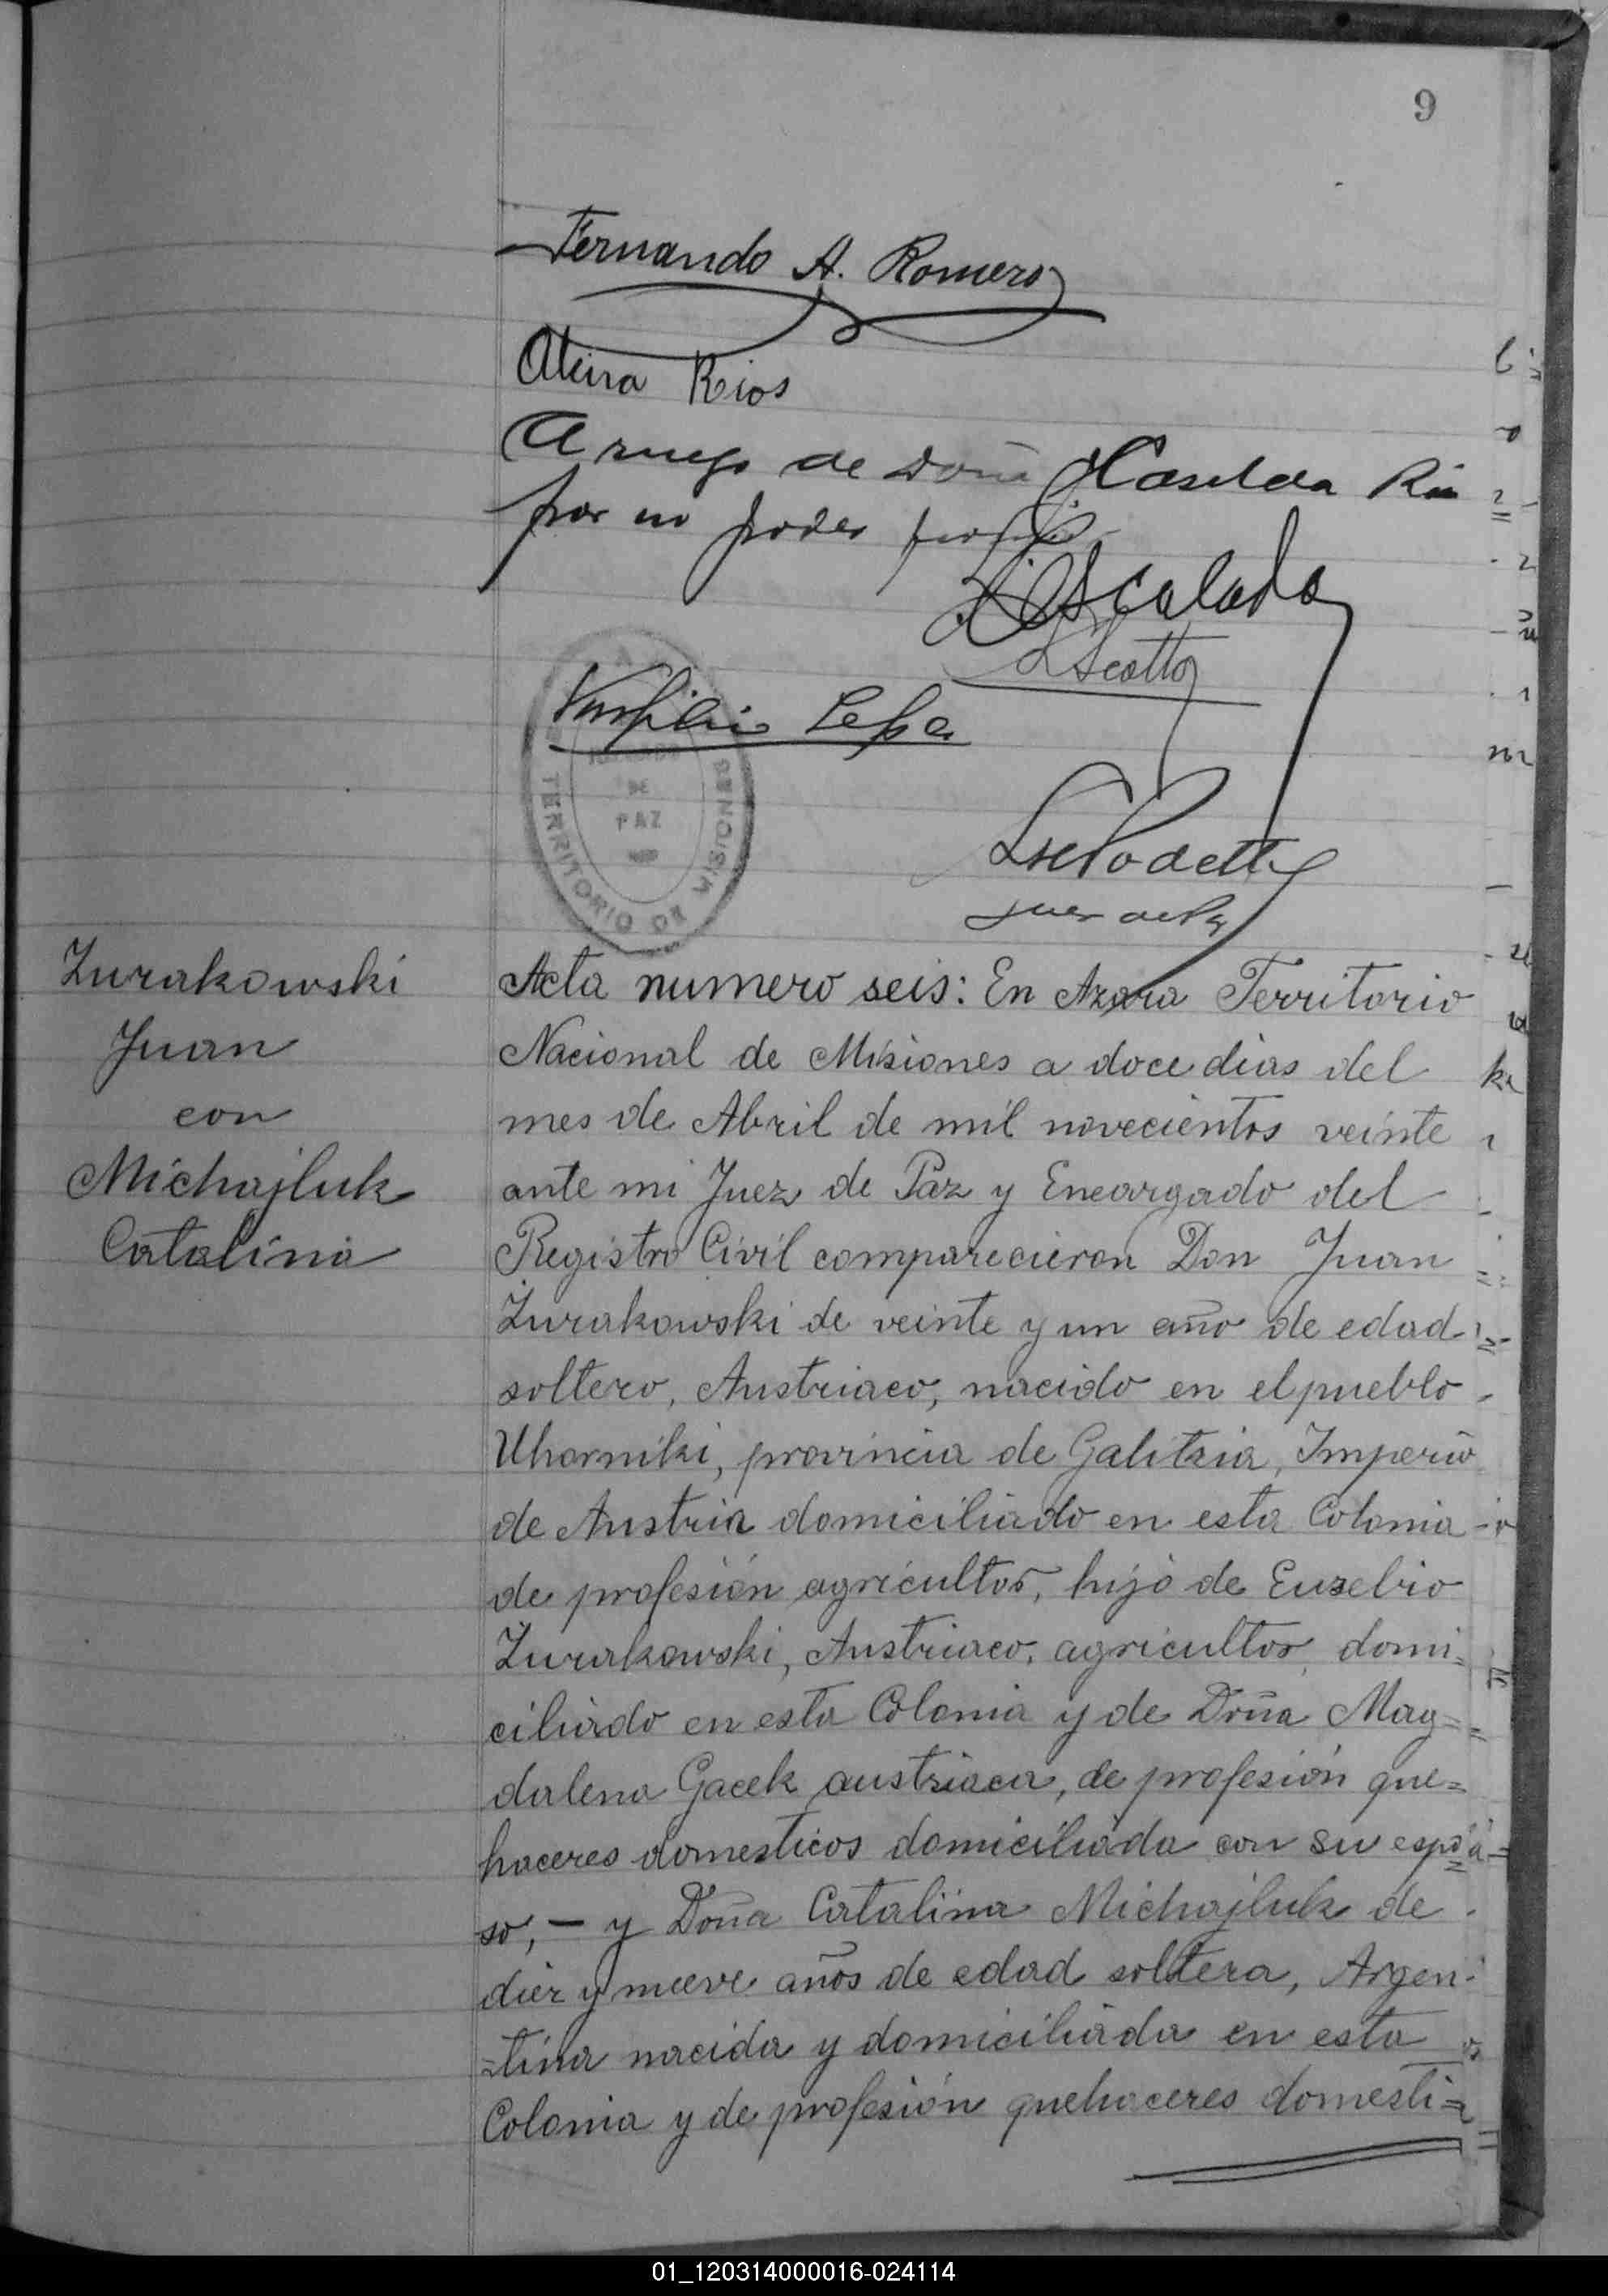 9
Fernando A. Romero
Rios
A ruego de Doña Casilda
por no poder
L Scotto
TERRITORIO DE MISIONES
DE
PAZ
Juez de Paz
Zurakowski
Juan
con
Michajluk
Catalina
Acta numero seis: En Azara Territorio
Nacional de Misiones a doce dias del
mes de Abril de mil novecientos veinte
ante mi Juez de Paz y Encargado del
Registro Civil comparecieron Don Juan
Zurakowski de veinte y un año de edad
soltero, Austriaco, nacido en el pueblo
Uhorniki, provincia de Galitzia, Imperio
de Austria domiciliado en esta Colonia
de profesión agricultor, hijo de Euzebio
Zurakowski, Austriaco, agricultor, domi=
ciliado en esta Colonia y de Doña Mag=
dalena Gacek austriaca, de profesión que=
haceres domesticos domiciliada con su espo=
so, — y Doña Catalina Michajluk de
diez y nueve años de edad soltera, Argen-
=tina nacida y domiciliada en esta
Colonia y de profesión quehaceres domesti=
01_120314000016-024114